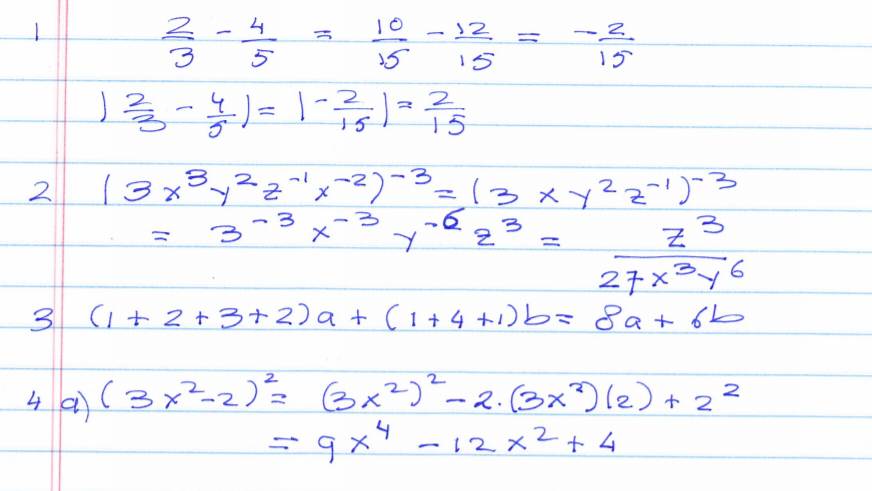 1 2/3 - 4/5 = 10/15 - 12/15 = -2/15
|2/3 - 4/5| = |-2/15| = 2/15
2 (3x³y²z⁻¹x⁻²)⁻³ = (3xy²z⁻¹)⁻³
= 3⁻³x⁻³y⁻⁶z³ = z³/27x³y⁶
3 (1+2+3+2)a + (1+4+1)b = 8a + 6b
4 a) (3x²-2)² = (3x²)² - 2·(3x²)(2) + 2²
= 9x⁴ - 12x² + 4